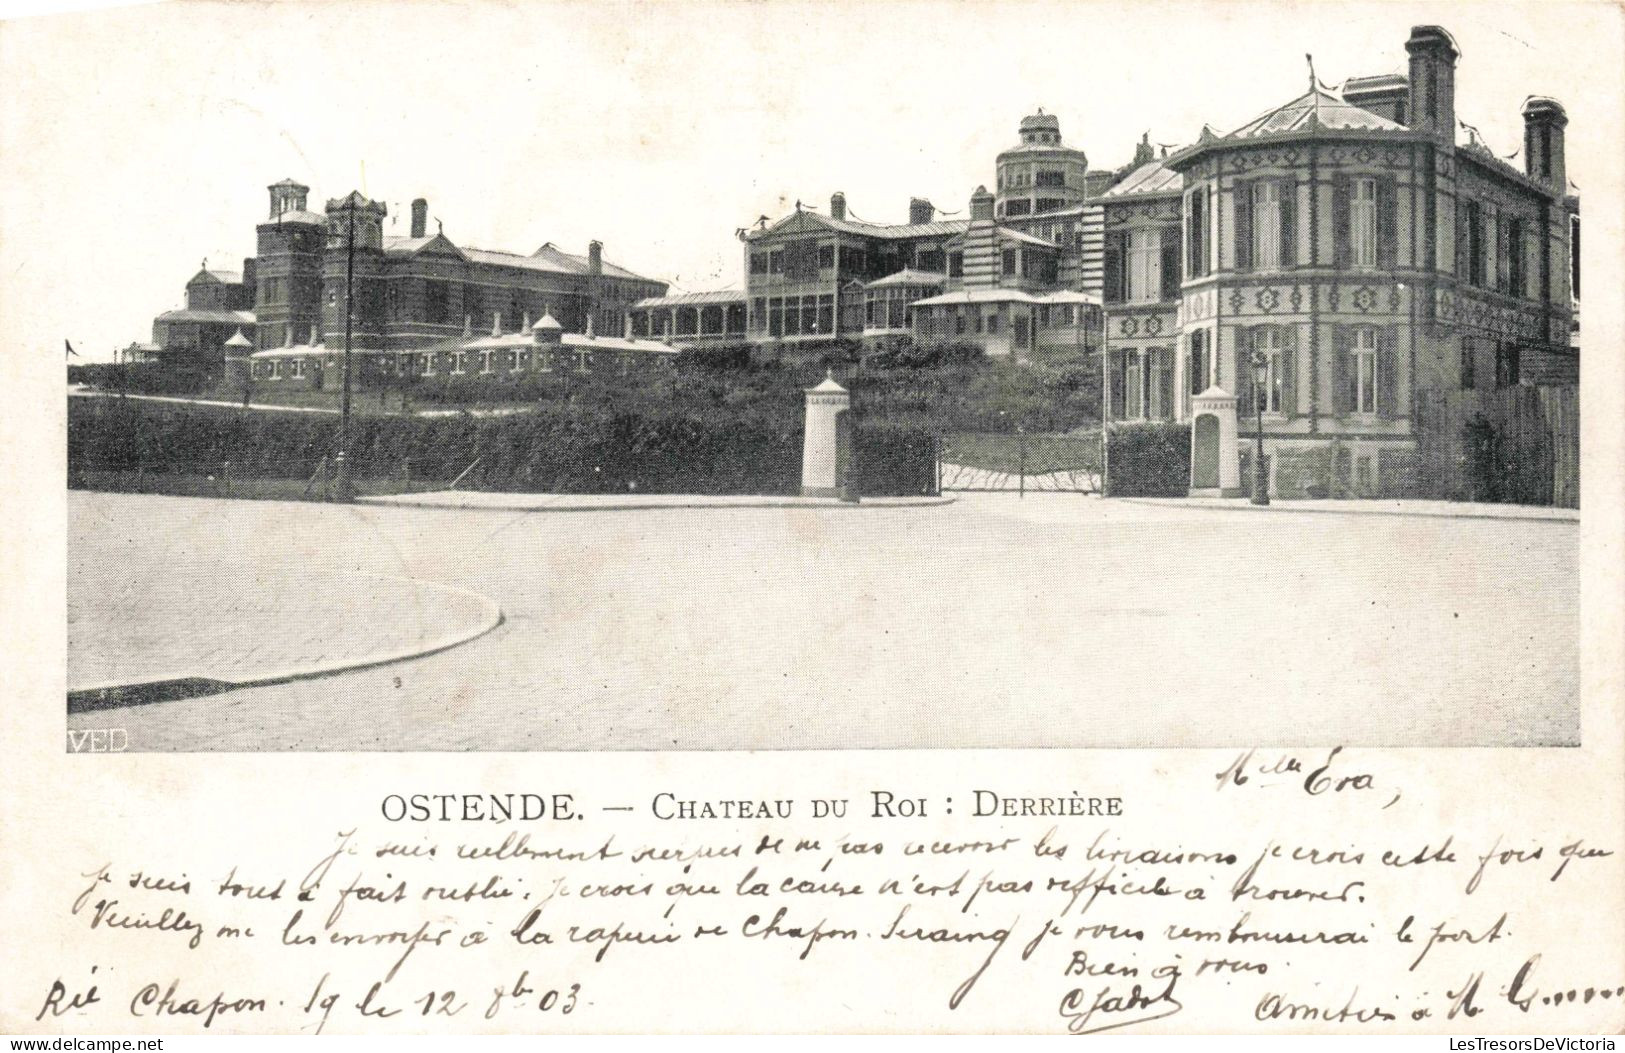 VED
Mlle Eva,
OSTENDE. — CHATEAU DU ROI : DERRIÈRE
Je suis réellement surpris de ne pas recevoir les livraisons je crois cette fois que
je suis tout à fait oublié. Je crois que la cause n'est pas difficile à trouver.
Veuillez me les envoyer à la Chapon. Seraing je vous rembourserai le port.
Bien à vous.
Chapon. Sg le 12 8bre 03.
CJadot
à M. G......
LesTresorsDeVictoria
delcampe.net